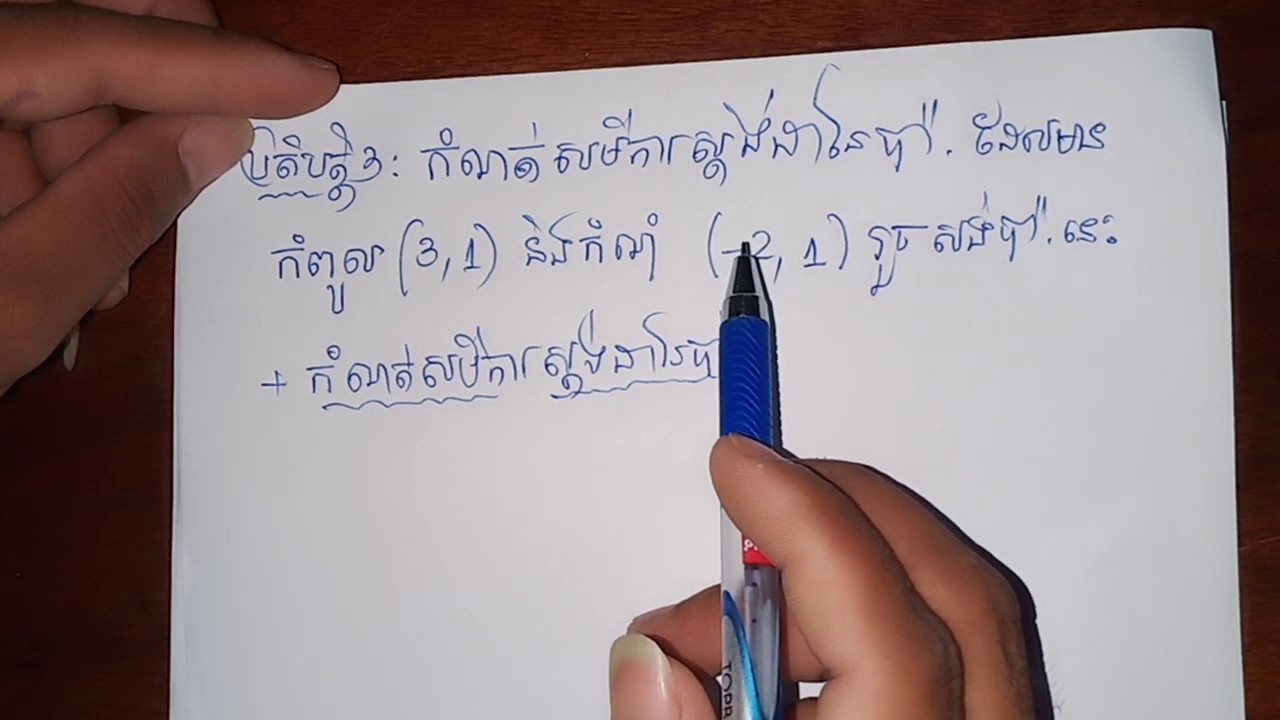 ប្រតិបត្តិ 3: កំណត់សមីការស្តង់ដានៃប៉ា. ដែលមាន
កំពូល (3, 1) និងកំណុំ (-2, 1) រួចសង់ប៉ា. នេះ
+ កំណត់សមីការស្តង់ដានៃប៉ា
TOPR